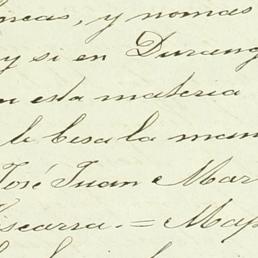 y nomas
y si en Durang
esta materia
le besa la man
José Juan Mar
iscarra. = Map